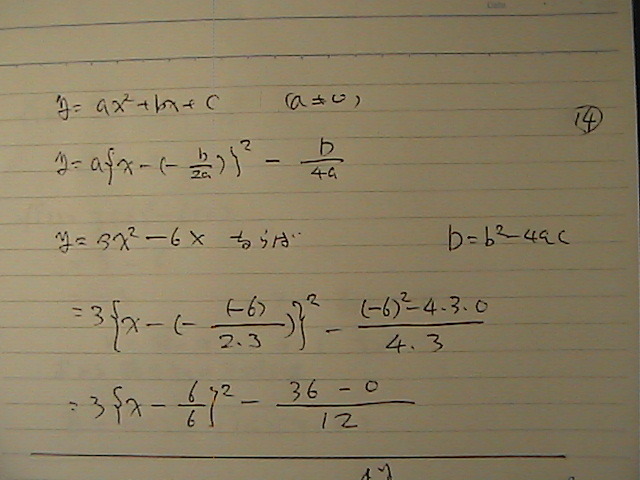 y = ax² + bx + c (a ≠ 0)
⑭
y = a{x - (- b/2a)}² - D/4a
y = 3x² - 6x ならば
D = b² - 4ac
= 3{x - (- (-6)/2.3)}² - (-6)² - 4.3.0/4.3
= 3{x - 6/6}² - 36 - 0/12